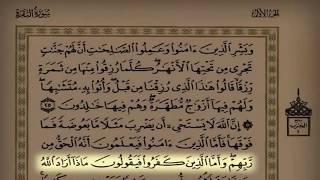 الجزء الأول
سورة البقرة
وَبَشِّرِ ٱلَّذِينَ ءَامَنُوا۟ وَعَمِلُوا۟ ٱلصَّٰلِحَٰتِ أَنَّ لَهُمْ جَنَّٰتٍ
تَجْرِى مِن تَحْتِهَا ٱلْأَنْهَٰرُ كُلَّمَا رُزِقُوا۟ مِنْهَا مِن ثَمَرَةٍ
رِّزْقًا قَالُوا۟ هَٰذَا ٱلَّذِى رُزِقْنَا مِن قَبْلُ وَأُتُوا۟ بِهِۦ مُتَشَٰبِهًا
وَلَهُمْ فِيهَآ أَزْوَٰجٌ مُّطَهَّرَةٌ وَهُمْ فِيهَا خَٰلِدُونَ ٢٥
إِنَّ ٱللَّهَ لَا يَسْتَحْىِۦٓ أَن يَضْرِبَ مَثَلًا مَّا بَعُوضَةً فَمَا
فَوْقَهَا فَأَمَّا ٱلَّذِينَ ءَامَنُوا۟ فَيَعْلَمُونَ أَنَّهُ ٱلْحَقُّ مِن
رَّبِّهِمْ وَأَمَّا ٱلَّذِينَ كَفَرُوا۟ فَيَقُولُونَ مَاذَآ أَرَادَ ٱللَّهُ